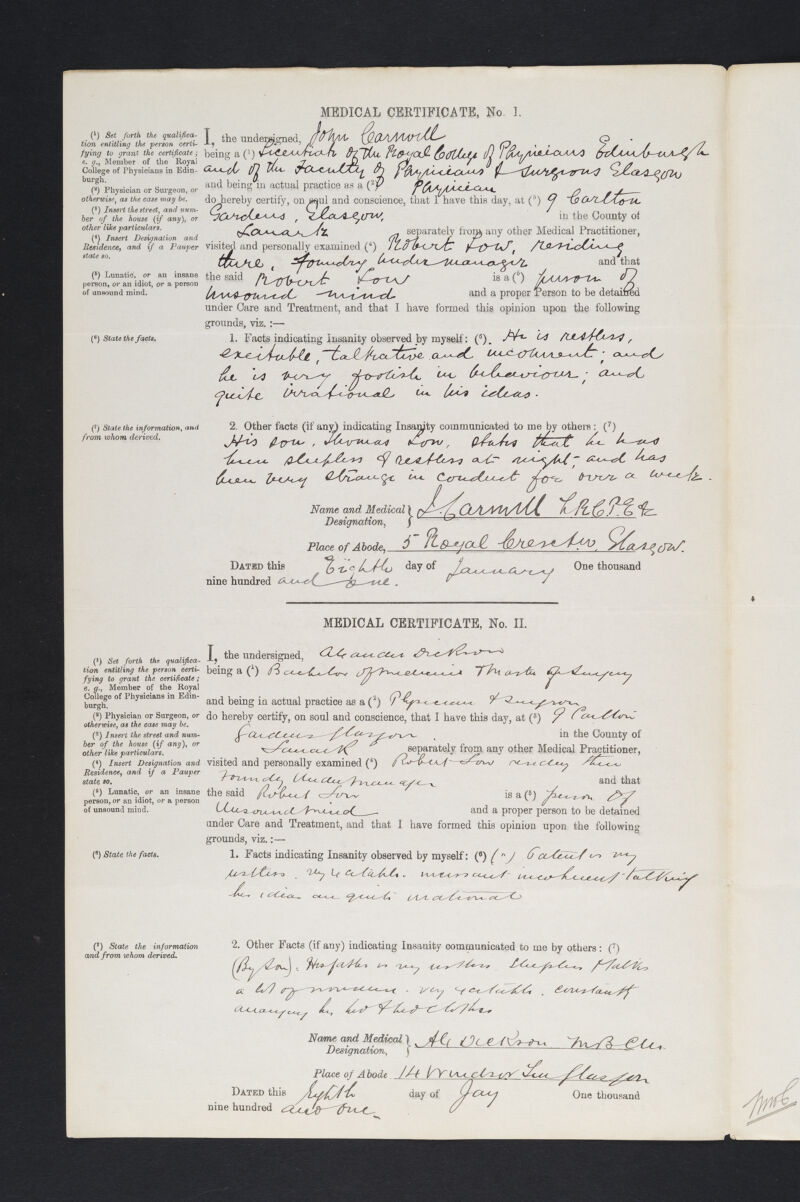 MEDICAL CERTIFICATE, No. I.
(¹) Set forth the qualifica-
tion entitling the person certi-
fying to grant the certificate;
e. g., Member of the Royal
College of Physicians in Edin-
burgh.
(²) Physician or Surgeon, or
otherwise, as the case may be.
(³) Insert the street, and num-
ber of the house (if any), or
other like particulars.
(⁴) Insert Designation and
Residence, and if a Pauper
state so.
(⁵) Lunatic, or an insane
person, or an idiot, or a person
of unsound mind.
I, the undersigned, John Carswell
being a (¹) Licentiate of the Royal College of Physicians Edinburgh
and of the Faculty of Physicians & Surgeons Glasgow
and being in actual practice as a (²) Physician
do hereby certify, on soul and conscience, that I have this day, at (³) 9 Carlton
Gardens, Glasgow, in the County of
Lanark separately from any other Medical Practitioner,
visited and personally examined (⁴) Robert Low, residing
there, foundry under manager and that
the said Robert Low is a (⁵) person of
unsound mind and a proper Person to be detained
under Care and Treatment, and that I have formed this opinion upon the following
grounds, viz. :—
(⁶) State the facts.
1. Facts indicating Insanity observed by myself: (⁶). He is restless,
excitable, talkative and incoherent; and
he is very foolish in behaviour; and
quite irrational in his ideas.
(⁷) State the information, and
from whom derived.
2. Other facts (if any) indicating Insanity communicated to me by others: (⁷)
His son, Thomas Low, states that he has
been sleepless & restless at night, and has
been very strange in conduct for over a week.
Name and Medical Designation, J. Carswell L.R.C.P.E &c
Place of Abode, 5 Royal Crescent W. Glasgow.
DATED this Eighth day of January One thousand
nine hundred and one.
MEDICAL CERTIFICATE, No. II.
(¹) Set forth the qualifica-
tion entitling the person certi-
fying to grant the certificate;
e. g., Member of the Royal
College of Physicians in Edin-
burgh.
(²) Physician or Surgeon, or
otherwise, as the case may be.
(³) Insert the street and num-
ber of the house (if any), or
other like particulars.
(⁴) Insert Designation and
Residence, and if a Pauper
state so.
(⁵) Lunatic, or an insane
person, or an idiot, or a person
of unsound mind.
I, the undersigned, Alexander Dickson
being a (¹) Bachelor of medicine & Master of Surgery
and being in actual practice as a (²) Physician & Surgeon
do hereby certify, on soul and conscience, that I have this day, at (³) 9 Carlton
Gardens Glasgow in the County of
Lanark separately from any other Medical Practitioner,
visited and personally examined (⁴) Robert Low residing there
Foundry Undermanager and that
the said Robert Low is a (⁵) person of
Unsound mind and a proper person to be detained
under Care and Treatment, and that I have formed this opinion upon the following
grounds, viz. :—
(⁶) State the facts.
1. Facts indicating Insanity observed by myself: (⁶) Patient is very
restless. very excitable. incessant incoherent talking
his ideas are quite irrational
(⁷) State the information
and from whom derived.
2. Other Facts (if any) indicating Insanity communicated to me by others: (⁷)
(By Son). His father is very restless sleepless & talks
a lot of nonsense. very excitable. constantly
arranging his bed & bed clothes
Name and Medical Designation, Alex Dickson M.B. C.M.
Place of Abode 14 Windsor Ter Glasgow
DATED this Eighth day of Jay One thousand
nine hundred and one